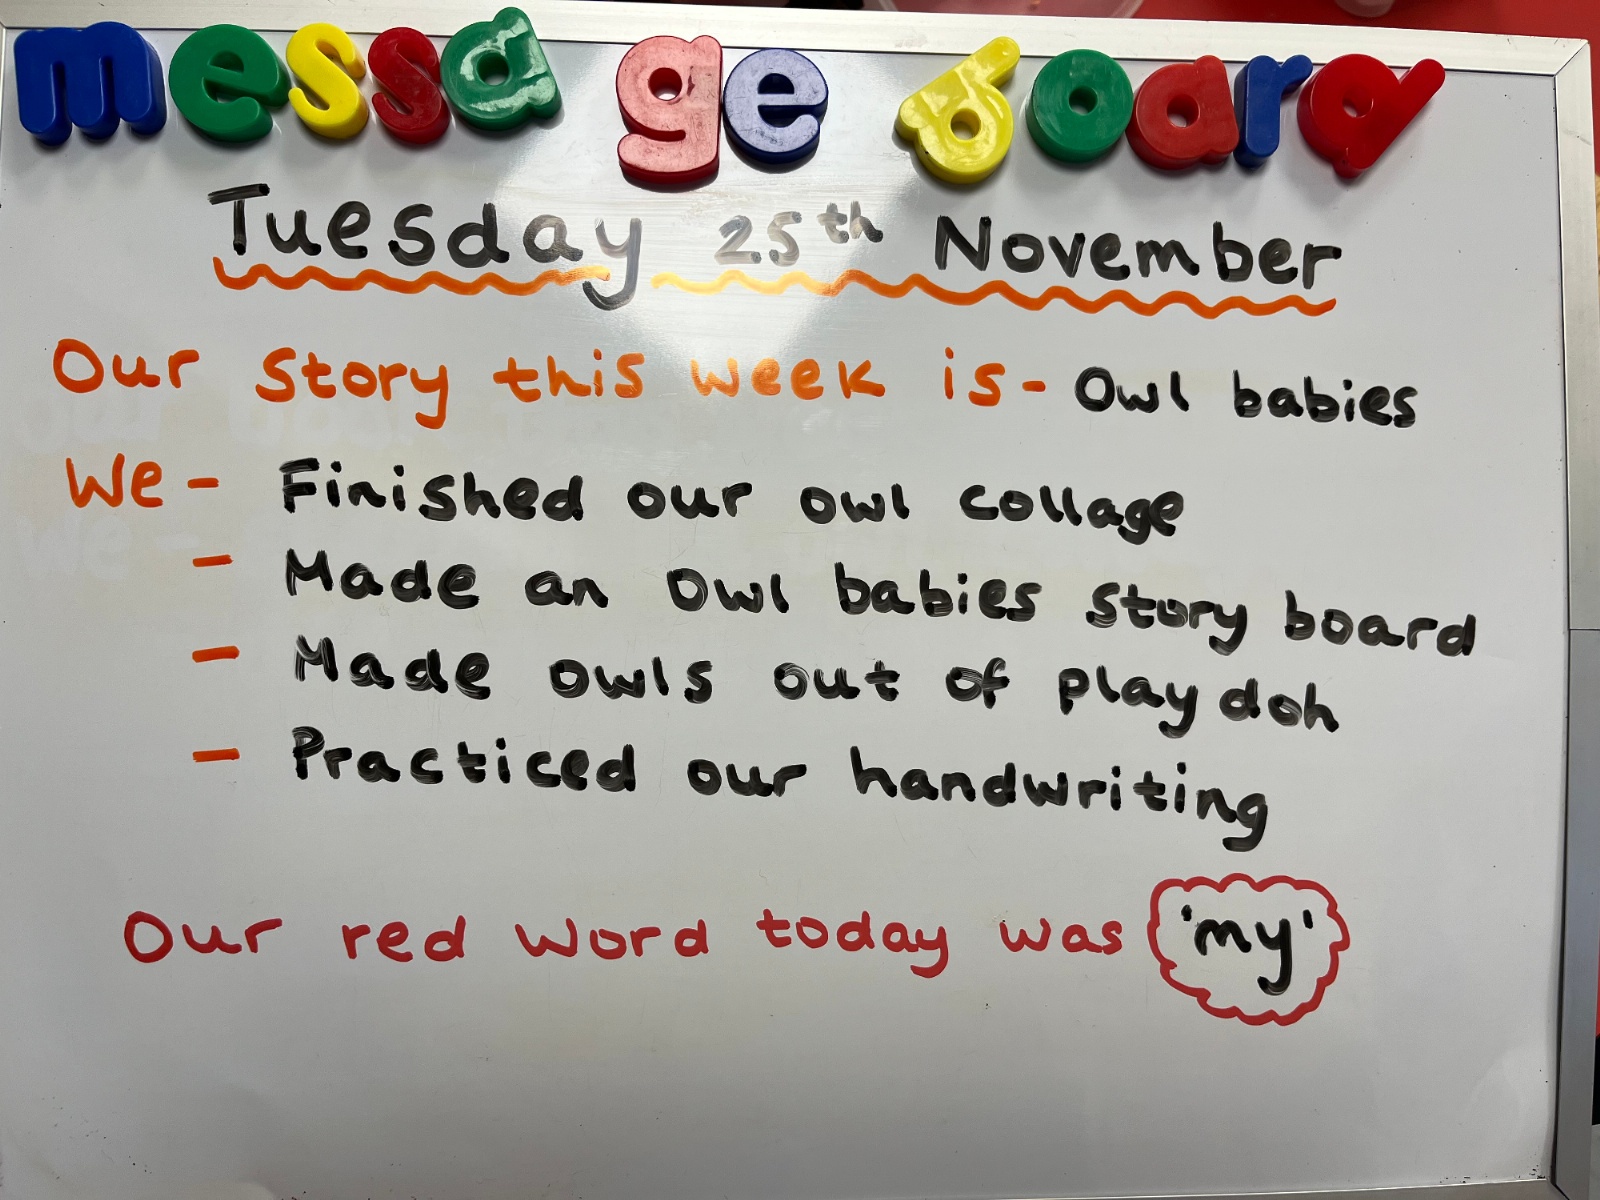 message board
Tuesday 25th November
Our story this week is - Owl babies
We - Finished our owl collage
- Made an Owl babies story board
- Made owls out of play doh
- Practiced our handwriting
Our red word today was 'my'